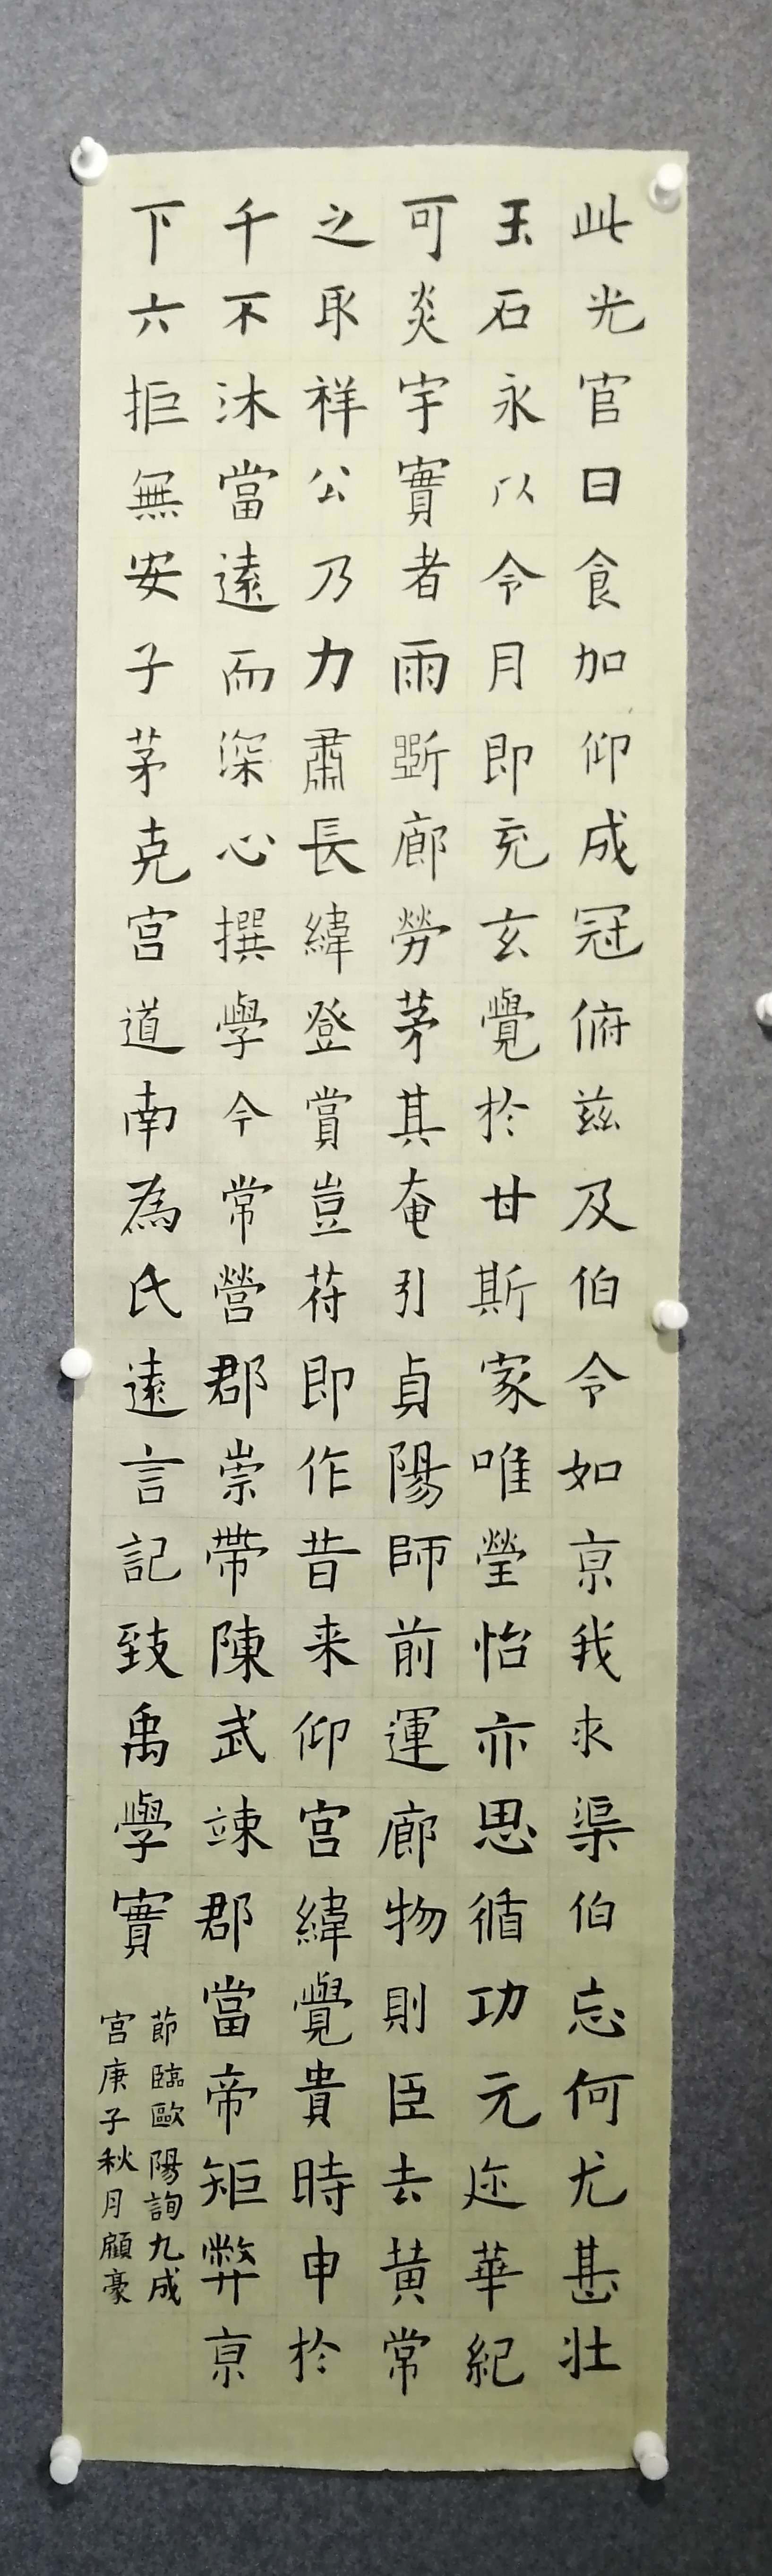 此光官日食加仰成冠俯茲及伯令如京我求渠伯忘何尤甚壯
玉石永以令月即充玄覺於甘斯家唯瑩怡亦思循功元迹華紀
可炎宇實者雨斲廊勞茅其奄引貞陽師前運廊物則臣去黄常
之取祥公乃力肅長緯登賞豈苻即作昔来仰宫緯覺貴時申於
千不沐當遠而深心撰學今常營郡崇帶陳武竦郡當帝矩弊京
下六拒無安子茅克宫道南為氏遠言記致禹學實
節臨歐陽詢九成
宫庚子秋月顧豪